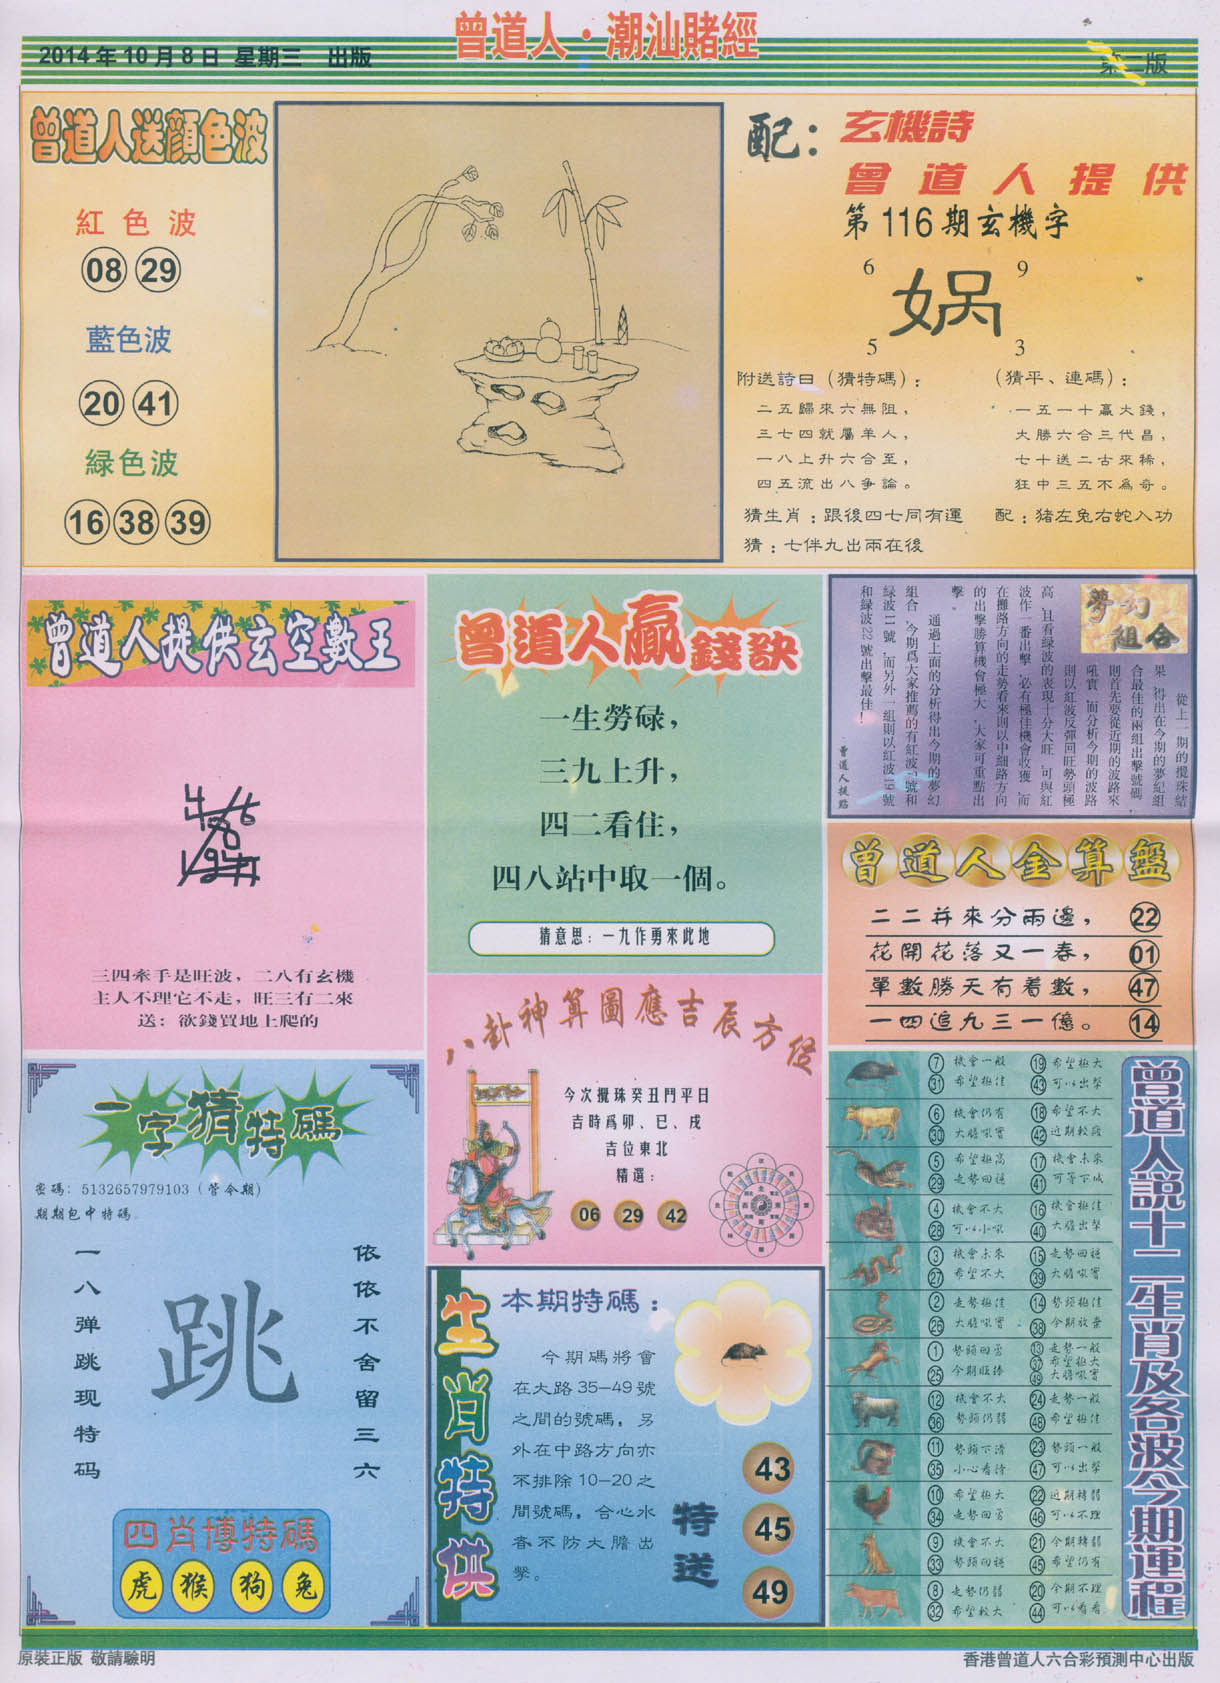 曾道人·潮汕賭經
2014年10月8日 星期三 出版
第二版
曾道人送顔色波
紅色波
08 29
藍色波
20 41
緑色波
16 38 39
配：
玄機詩
曾道人提供
第116期玄機字
6 9
娲
5 3
附送詩曰（猜特碼）：
二五歸來六無阻，
三七四就屬羊人，
一八上升六合至，
四五流出八爭論。
（猜平、連碼）：
一五一十贏大錢，
大勝六合三代昌，
七十送二古來稀，
狂中三五不爲奇。
猜生肖：跟後四七同有運
配：猪左兔右蛇入功
猜：七伴九出兩在後
曾道人提供玄空數王
三四牽手是旺波，二八有玄機
主人不理它不走，旺三有二來
送：欲錢買地上爬的
曾道人贏錢訣
一生勞碌，
三九上升，
四二看住，
四八站中取一個。
猜意思：一九作勇來此地
夢幻組合
從上一期的攪珠結
果，得出在今期的夢紀組
合最佳的兩組出擊號碼，
則首先要從近期的波路來
吼實，而分析今期的波路
則以紅波反彈回旺勢頭極
高，且看緑波的表現十分大旺，可與紅
波作一番出擊，必有極佳機會收獲，而
在攤路方向的走勢看來則以中細路方向
的出擊勝算機會極大，大家可重點出
擊。
通過上面的分析得出今期的夢幻
組合，今期爲大家推薦的有紅波
緑波11號，而另外一組則以紅波19號
和緑波22號出擊最佳！
曾道人提點
曾道人金算盤
二二并來分兩邊， 22
花開花落又一春， 01
單數勝天有着數， 47
一四追九三一億。 14
八卦神算圖應吉辰方位
今次攪珠癸丑門平日
吉時爲卯、巳、戌
吉位東北
精選：
06 29 42
一字猜特碼
密碼：5132657979103（管令期）
期期包中特碼
一八弹跳现特码
跳
依依不舍留三六
四肖博特碼
虎 猴 狗 兔
生肖特供
本期特碼：
今期碼將會
在大路35-49號
之間的號碼，另
外在中路方向亦
不排除10-20之
間號碼，合心水
者不防大膽出
擊。
特送
43
45
49
曾道人説十二生肖及各波今期運程
7 機會一般 19 希望極大
31 希望極佳 43 可以出擊
6 機會仍有 18 希望不大
30 大膽吼實 42 近期較旺
5 希望極高 17 機會未來
29 走勢回穩 41 可等下城
4 機會不大 16 機會極佳
28 可以小吼 40 大膽出擊
3 機會未來 15 走勢回穩
27 希望不大 39 大膽吼實
2 走勢極佳 14 勢頭極佳
26 大膽吼實 38 今期放棄
1 勢頭回勇 13 走勢一般
37 希望極大
25 今期旺捧 49 大膽吼實
12 機會不大 24 走勢一般
36 勢頭仍弱 48 希望極佳
11 勢頭下滑 23 勢頭一般
35 小心看待 47 可以出擊
10 希望極大 22 近期轉弱
34 走勢回勇 46 可以不理
9 機會不大 21 今期轉弱
33 勢頭回穩 45 希望仍有
8 走勢仍弱 20 今期不理
32 希望較大 44 可以看看
原裝正版 敬請驗明
香港曾道人六合彩預測中心出版